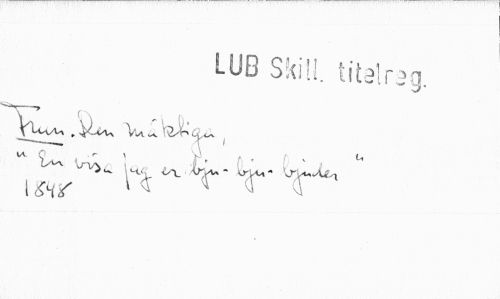 LUB Skill. titelreg.
Frun. Den mäktiga,
"En visa jag er bju-bju-bjuder"
1848